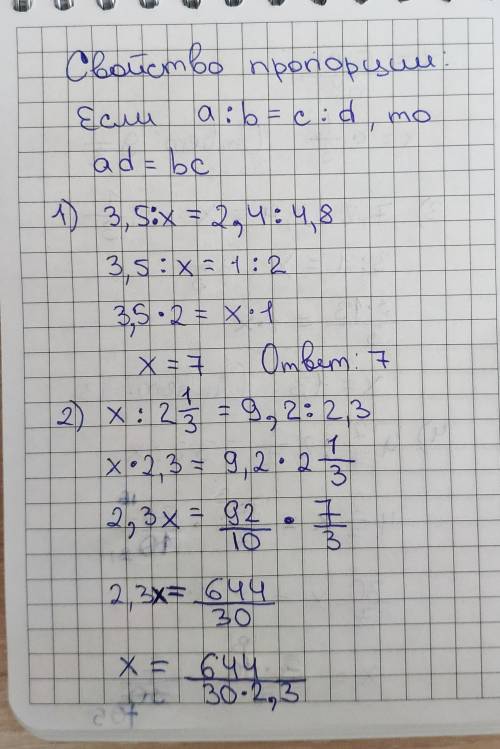 Свойство пропорции:
Если a : b = c : d, то
ad = bc
1) 3,5 : x = 2,4 : 4,8
3,5 : x = 1 : 2
3,5 · 2 = x · 1
x = 7 Ответ: 7
2) x : 2 1/3 = 9,2 : 2,3
x · 2,3 = 9,2 · 2 1/3
2,3x = 92/10 · 7/3
2,3x = 644/30
x = 644/30·2,3